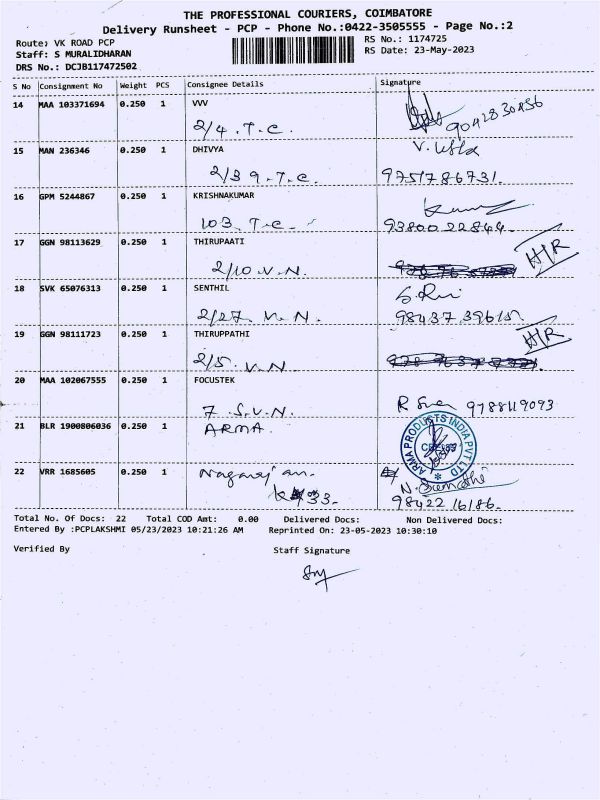 THE PROFESSIONAL COURIERS, COIMBATORE
Delivery Runsheet - PCP - Phone No.:0422-3505555 - Page No.:2
Route: VK ROAD PCP
RS No.: 1174725
Staff: S MURALIDHARAN
RS Date: 23-May-2023
DRS No.: DCJB117472502
S No Consignment No Weight PCS Consignee Details Signature
14 MAA 103371694 0.250 1 VVV
2/4 . T. C. 9042830456
15 MAN 236346 0.250 1 DHIVYA V. Usha
2/39 . T. C. 9751786731.
16 GPM 5244867 0.250 1 KRISHNAKUMAR
103. T. C. 93800 22844.
17 GGN 98113629 0.250 1 THIRUPAATI H/R
2/10 . V. N.
18 SVK 65076313 0.250 1 SENTHIL
2/27. V. N. 98437 39615.
19 GGN 98111723 0.250 1 THIRUPPATHI H/R
2/5. V. N.
20 MAA 102067555 0.250 1 FOCUSTEK
7. S. V. N. 9788119093
21 BLR 1900806036 0.250 1 ARMA.
ARMA PRODUCTS INDIA PVT LTD
22 VRR 1685605 0.250 1 Nagaraj
33. 98422 16186.
Total No. Of Docs: 22 Total COD Amt: 0.00 Delivered Docs: Non Delivered Docs:
Entered By :PCPLAKSHMI 05/23/2023 10:21:26 AM Reprinted On: 23-05-2023 10:30:10
Verified By Staff Signature